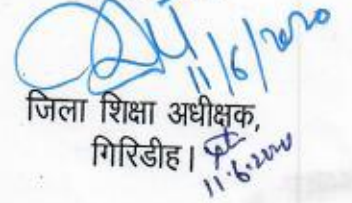 11/6/2020
जिला शिक्षा अधीक्षक,
गिरिडीह।
11.6.2020